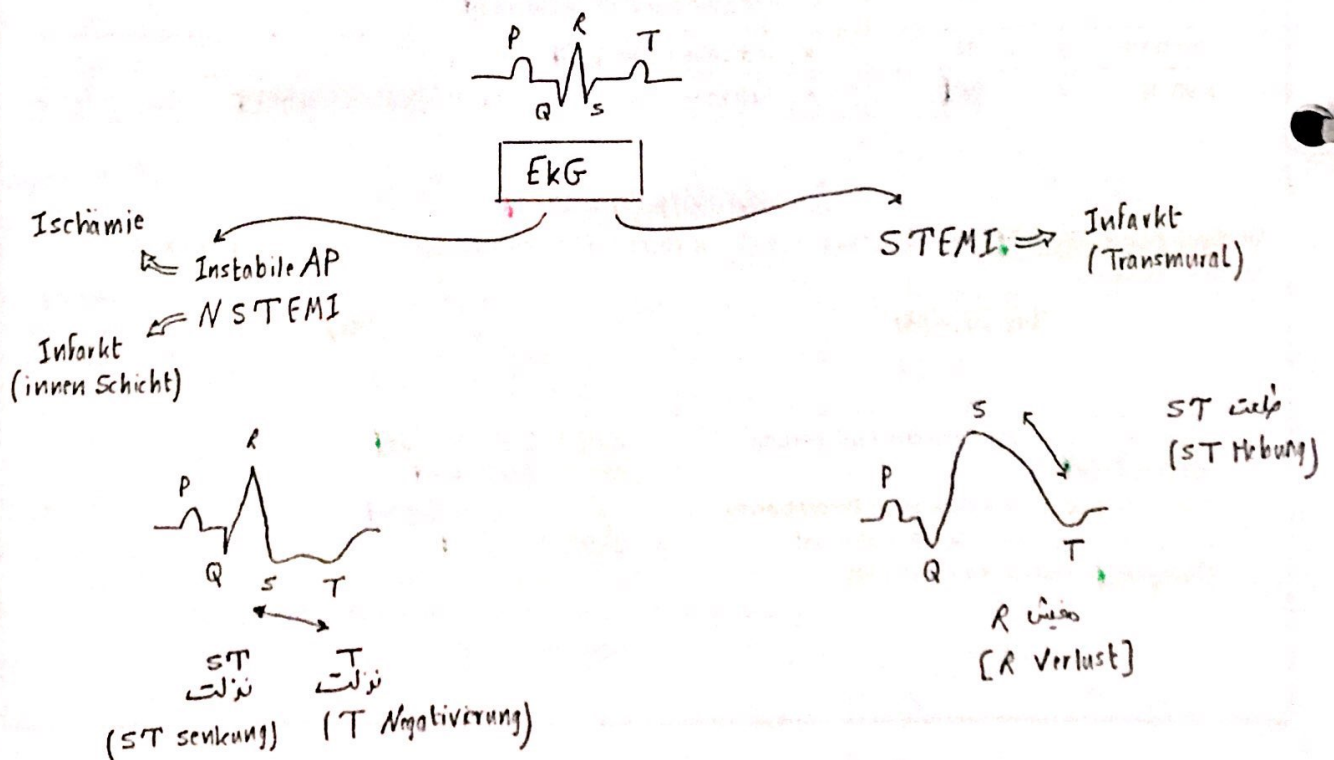 P R T
Q S
EKG
Ischämie
Instabile AP
NSTEMI
Infarkt
(innen Schicht)
STEMI
Infarkt
(Transmural)
P R
Q S T
ST T
نزلت نزلت
(ST senkung) (T Negativirung)
S
P
Q T
ST طلعت
(ST Hebung)
R مفيش
[R Verlust]